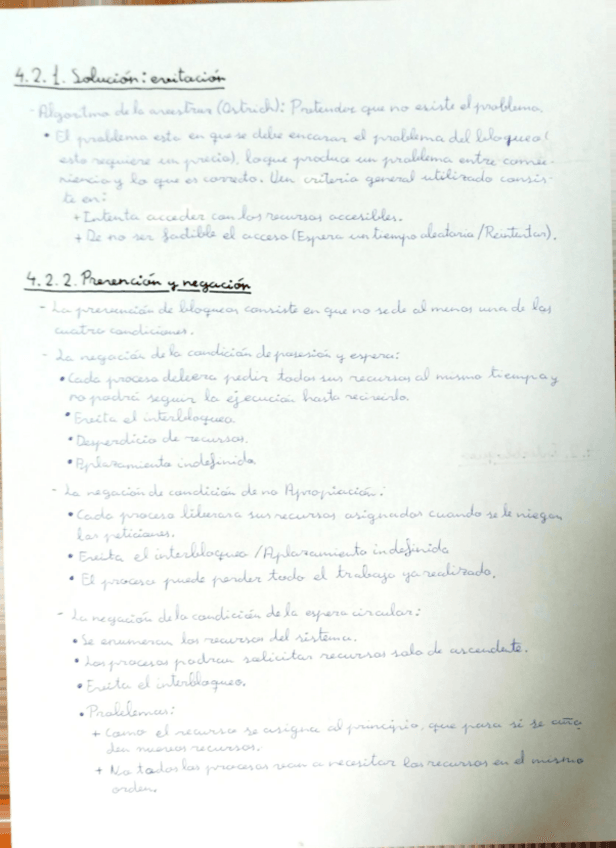 4.2.1. Solución: evitación
- Algoritmo de la avestruz (Ostrich): Pretender que no existe el problema.
• El problema esta en que se debe encarar el problema del bloqueo (
esto requiere un precio), loque produce un problema entre conve-
niencia y lo que es correcto. Uen criterio general utilizado consis-
te en:
+ Intenta acceder con los recursos accesibles.
+ De no ser factible el acceso (Espera un tiempo aleatorio / Reintentar).
4.2.2. Prevención y negación
- La prevención de bloqueos consiste en que no se de al menos una de las
cuatro condiciones.
- La negación de la condición de posesión y espera:
• Cada proceso debera pedir todos sus recursos al mismo tiempo y
no podrá seguir la ejecución hasta recivirlo.
• Evita el interbloqueo.
• Desperdicio de recursos.
• Aplazamiento indefinido
- La negación de condición de no Apropiación:
• Cada proceso liberara sus recursos asignados cuando se le niegan
las peticiones.
• Evita el interbloqueo / Aplazamiento indefinido
• El proceso puede perder todo el trabajo ya realizado.
- La negación de la condición de la espera circular:
• Se enumeran los recursos del sistema.
• Los procesos podran solicitar recursos solo de ascendente.
• Evita el interbloqueo.
• Problemas:
+ Como el recurso se asigna al principio, que pasa si se aña
den nuevos recursos.
+ No todos los procesos van a necesitar los recursos en el mismo
orden.